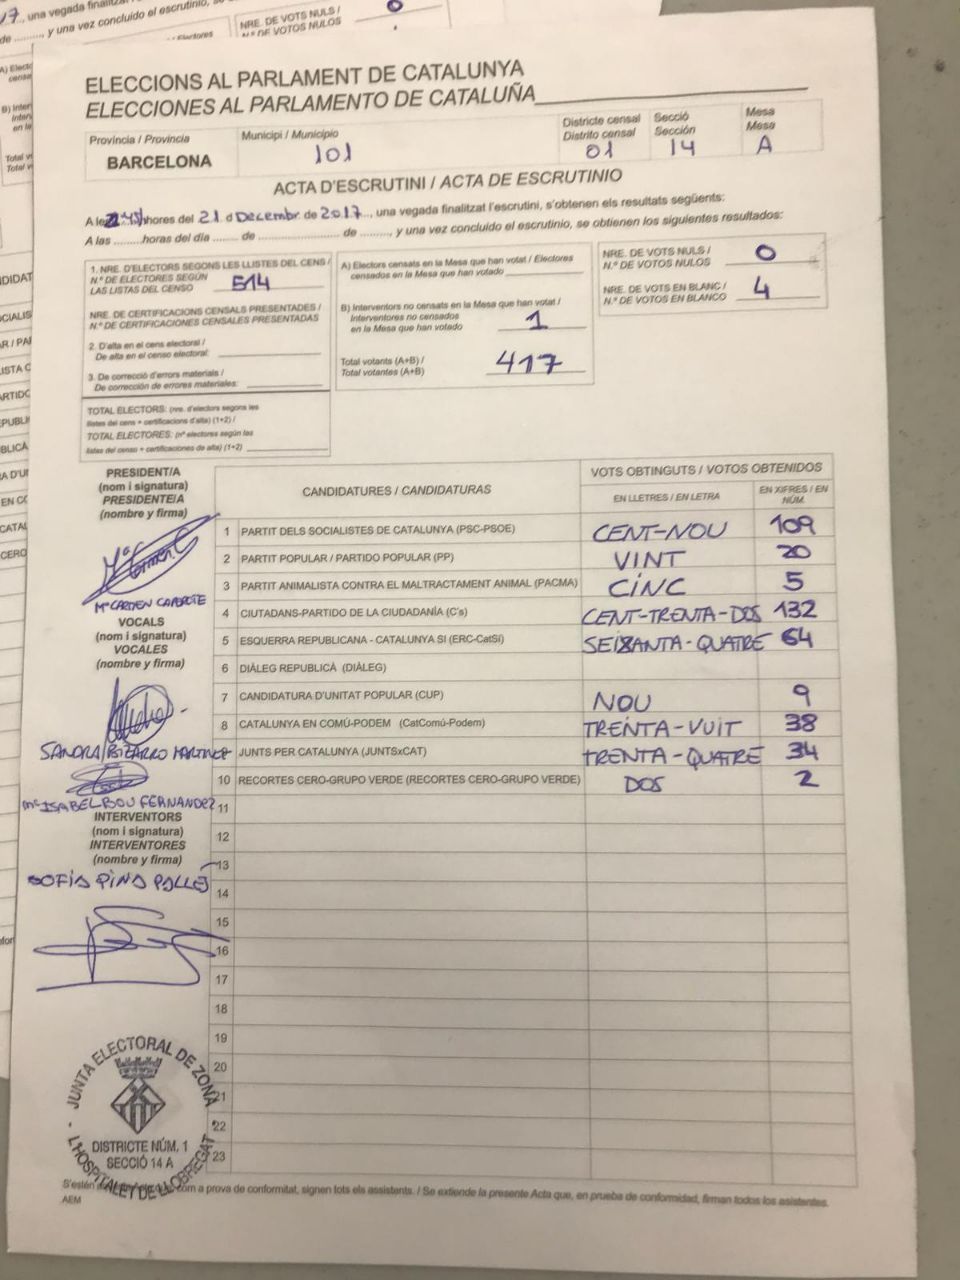 7..., una vegada finalitz
de ........., y una vez concluido el escrutinio, se
NRE. DE VOTS NULS /
N.º DE VOTOS NULOS
0
ELECCIONS AL PARLAMENT DE CATALUNYA
ELECCIONES AL PARLAMENTO DE CATALUÑA
Província / Provincia
BARCELONA
Municipi / Municipio
101
Districte censal
Distrito censal
01
Secció
Sección
14
Mesa
Mesa
A
ACTA D'ESCRUTINI / ACTA DE ESCRUTINIO
A les hores del 21 d Decembr de 2017..., una vegada finalitzat l'escrutini, s'obtenen els resultats següents:
A las .........horas del día ....... de .................... de ........., y una vez concluido el escrutinio, se obtienen los siguientes resultados:
1. NRE. D'ELECTORS SEGONS LES LLISTES DEL CENS /
N.º DE ELECTORES SEGÚN
LAS LISTAS DEL CENSO
514
NRE. DE CERTIFICACIONS CENSALS PRESENTADES /
N.º DE CERTIFICACIONES CENSALES PRESENTADAS
2. D'alta en el cens electoral /
De alta en el censo electoral:
3. De correcció d'errors materials /
De corrección de errores materiales:
TOTAL ELECTORS: (nre. d'electors segons les
llistes del cens + certificacions d'alta) (1+2) /
TOTAL ELECTORES: (nº electores según las
listas del censo + certificaciones de alta) (1+2)
A) Electors censats en la Mesa que han votat / Electores
censados en la Mesa que han votado
B) Interventors no censats en la Mesa que han votat /
Interventores no censados
en la Mesa que han votado
1
Total votants (A+B) /
Total votantes (A+B)
417
NRE. DE VOTS NULS /
N.º DE VOTOS NULOS
0
NRE. DE VOTS EN BLANC /
N.º DE VOTOS EN BLANCO
4
PRESIDENT/A
(nom i signatura)
PRESIDENTE/A
(nombre y firma)
Mª CARMEN CAPAROTE
VOCALS
(nom i signatura)
VOCALES
(nombre y firma)
SANDRA BIZARRO MARTINEZ
Mª ISABEL BOU FERNANDEZ
INTERVENTORS
(nom i signatura)
INTERVENTORES
(nombre y firma)
SOFIA PINO
CANDIDATURES / CANDIDATURAS
VOTS OBTINGUTS / VOTOS OBTENIDOS
EN LLETRES / EN LETRA
EN XIFRES / EN NÚM.
1 PARTIT DELS SOCIALISTES DE CATALUNYA (PSC-PSOE) CENT-NOU 109
2 PARTIT POPULAR / PARTIDO POPULAR (PP) VINT 20
3 PARTIT ANIMALISTA CONTRA EL MALTRACTAMENT ANIMAL (PACMA) CINC 5
4 CIUTADANS-PARTIDO DE LA CIUDADANÍA (C's) CENT-TRENTA-DOS 132
5 ESQUERRA REPUBLICANA - CATALUNYA SI (ERC-CatSí) SEIXANTA-QUATRE 64
6 DIÀLEG REPUBLICÀ (DIÀLEG)
7 CANDIDATURA D'UNITAT POPULAR (CUP) NOU 9
8 CATALUNYA EN COMÚ-PODEM (CatComú-Podem) TRENTA-VUIT 38
9 JUNTS PER CATALUNYA (JUNTSxCAT) TRENTA-QUATRE 34
10 RECORTES CERO-GRUPO VERDE (RECORTES CERO-GRUPO VERDE) DOS 2
11
12
13
14
15
16
17
18
19
20
21
22
23
JUNTA ELECTORAL DE ZONA
DISTRICTE NÚM. 1
SECCIÓ 14 A
L'HOSPITALET DE LLOBREGAT
S'estén com a prova de conformitat, signen tots els assistents. / Se extiende la presente Acta que, en prueba de conformidad, firman todos los asistentes.
AEM